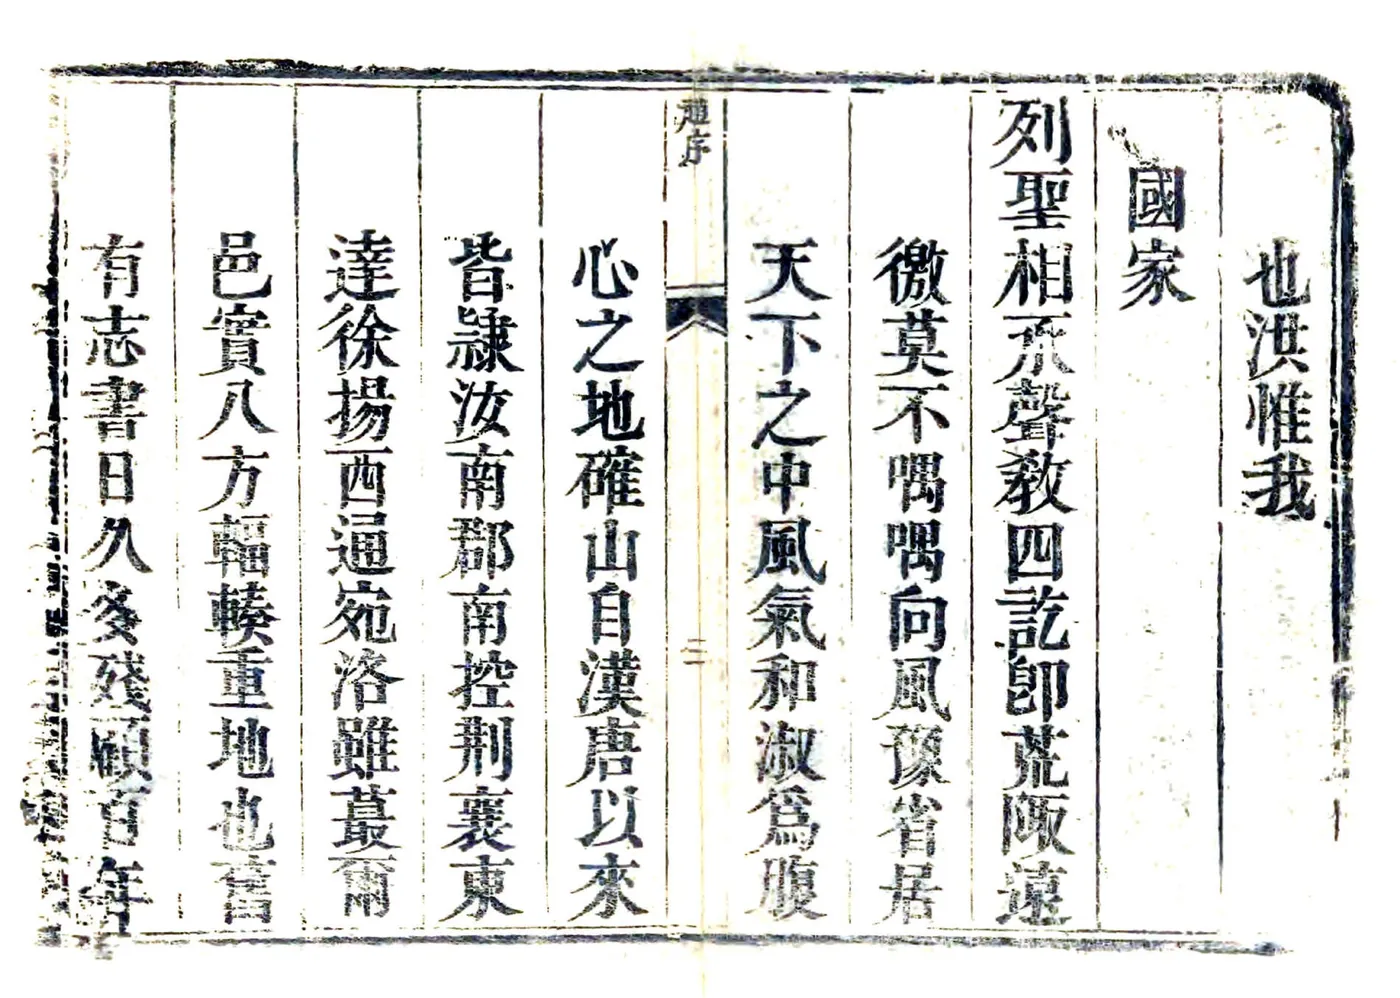 也洪惟我
國家
列聖相承聲教四訖卽荒陬遠
徼莫不喁喁向風豫省居
天下之中風氣和淑爲腹
趙序
二
心之地確山自漢唐以來
皆隸汝南郡南控荆襄東
達徐揚西通宛洛雖蕞爾
邑實八方輻輳重地也舊
有志書日久多殘願百年